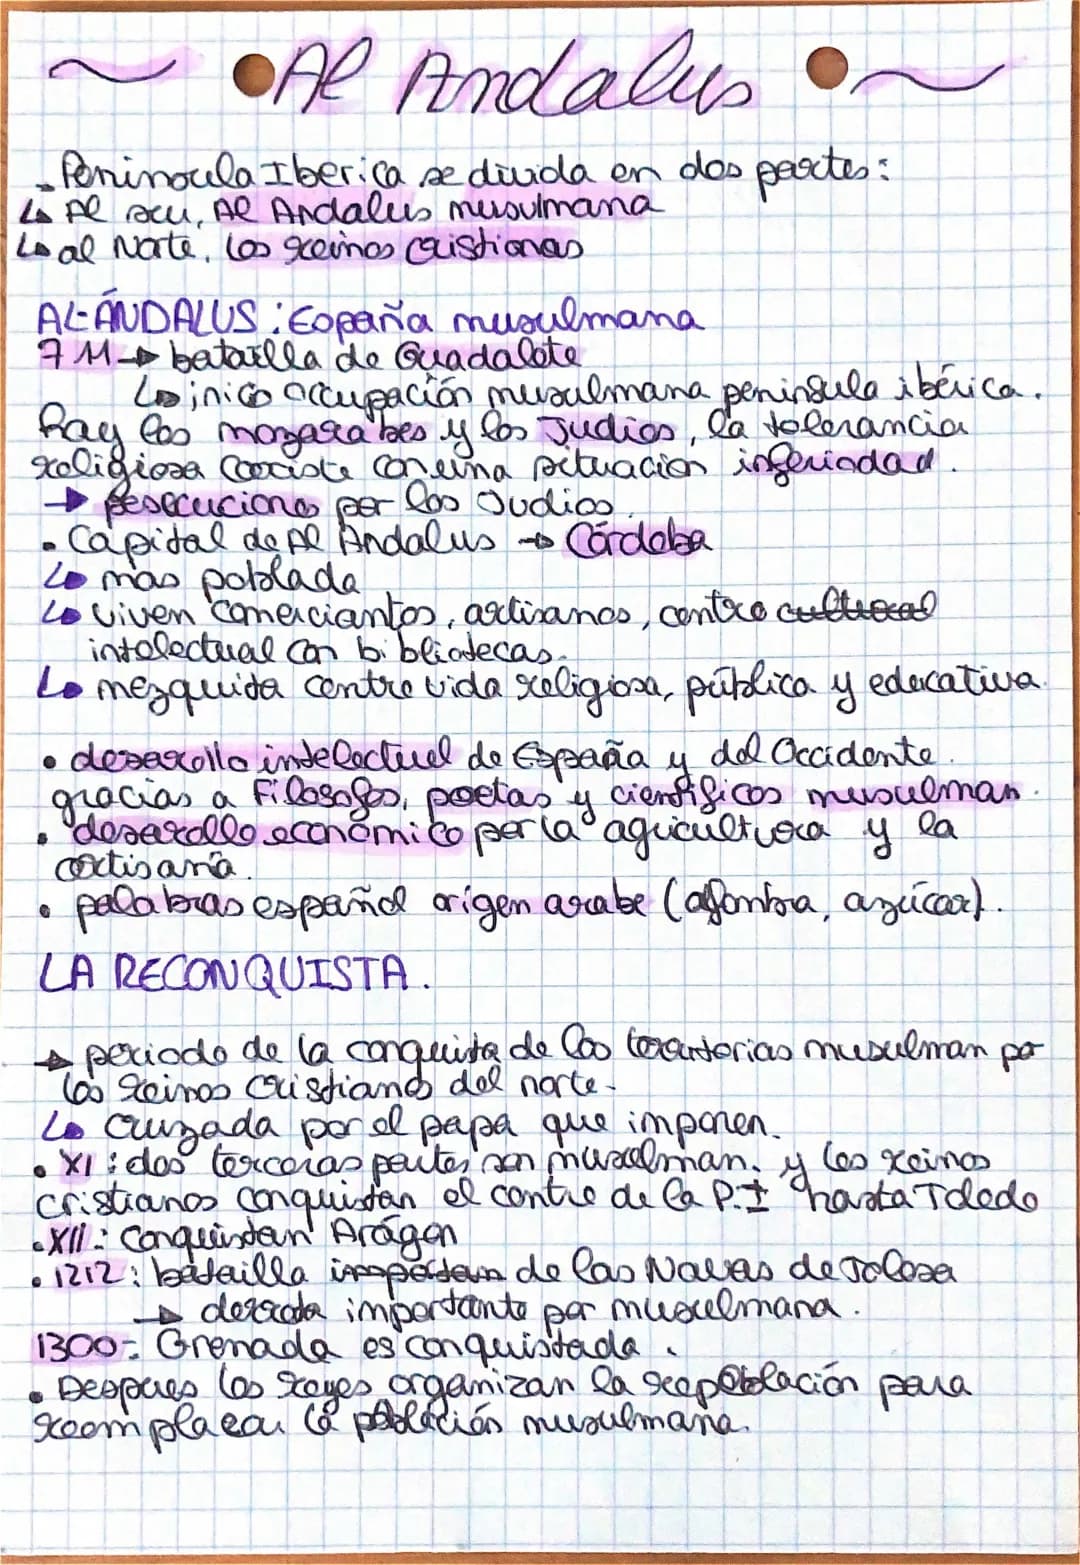 Al Andalus
- Peninsula Iberica se divida en dos partes:
↳ Al sur, Al Andalus musulmana
↳ al Norte, los reinos cristianos
AL-ÁNDALUS : España musulmana
711 → batailla de Guadalete
↳ inico occupación musulmana peninsula ibérica.
Hay los mozarabes y los Judios, la tolerancia
religiosa coexiste con una situacion inferiodad.
→ pesecuciones por los Judios.
• Capital de Al Andalus → Córdoba
↳ mas poblada
↳ viven comerciantos, artisanos, centro cultural
intelectual con bibliotecas.
↳ mezquita centro vida religiosa, pública y educativa.
• desarollo intelectuel de España y del Occidente.
gracias a Filosofos, poetas y cientificos musulman.
• desarollo económico por la agricultura y la
artisanía.
• palabras español origen arabe (alfombra, azúcar).
LA RECONQUISTA.
→ periodo de la conquista de los territorios musulman por
los reinos cristianos del norte.
↳ Cruzada por el papa que imponen.
• XI : dos terceras partes son musulman. y los reinos
cristianos conquistan el centro de la P.I hasta Toledo
• XII : Conquistan Arágon
• 1212 : batailla importan de las Navas de Tolosa
→ derrota importante por musulmana.
1300 : Grenada es conquistada.
• Despues los reyes organizan la repoblación para
reemplazar la población musulmana.